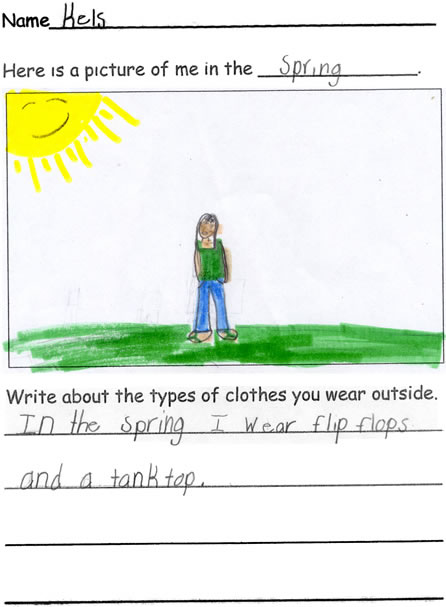 Name Kels
Here is a picture of me in the Spring.
Write about the types of clothes you wear outside.
In the spring I wear flip flops
and a tank top.